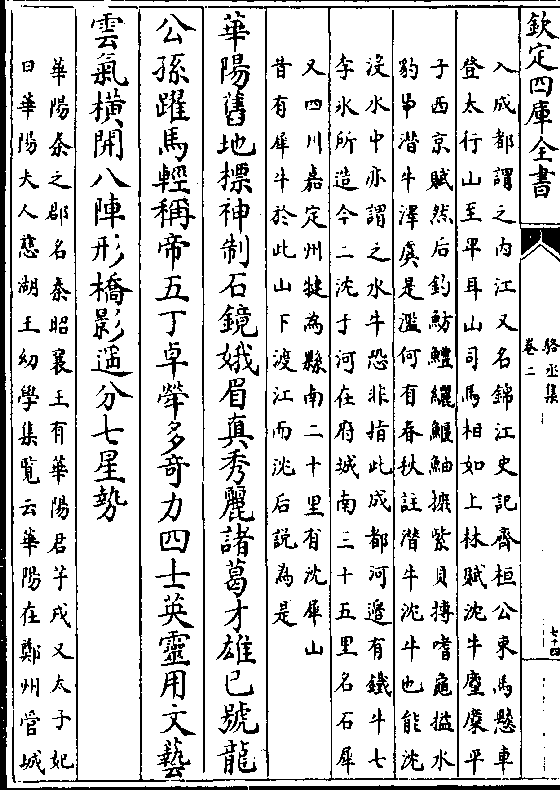 欽定四庫全書
駱丞集
卷二
七十四
入成都謂之内江又名錦江史記齊桓公束馬懸車
登太行山至平耳山司馬相如上林賦沈牛麈麋平
子西京賦然后釣魴鱧纚鰋鮋摭紫貝搏耆龜搤水
豹馽潛牛澤虞是濫何有春秋註潛牛沈牛也能沈
沒水中亦謂之水牛恐非指此成都河邊有鐵牛七
李氷所造今二沈于河在府城南三十五里名石犀
又四川嘉定州犍為縣南二十里有沈犀山
昔有犀牛於此山下渡江而沈后説為是
華陽舊地摽神制石鏡娥眉真秀麗諸葛才雄已號龍
公孫躍馬輕稱帝五丁卓犖多奇力四士英靈用文藝
雲氣橫開八陣形橋影遥分七星勢
華陽秦之郡名秦昭襄王有華陽君芊戎又太子妃
曰華陽夫人慈湖王幼學集覧云華陽在鄭州管城